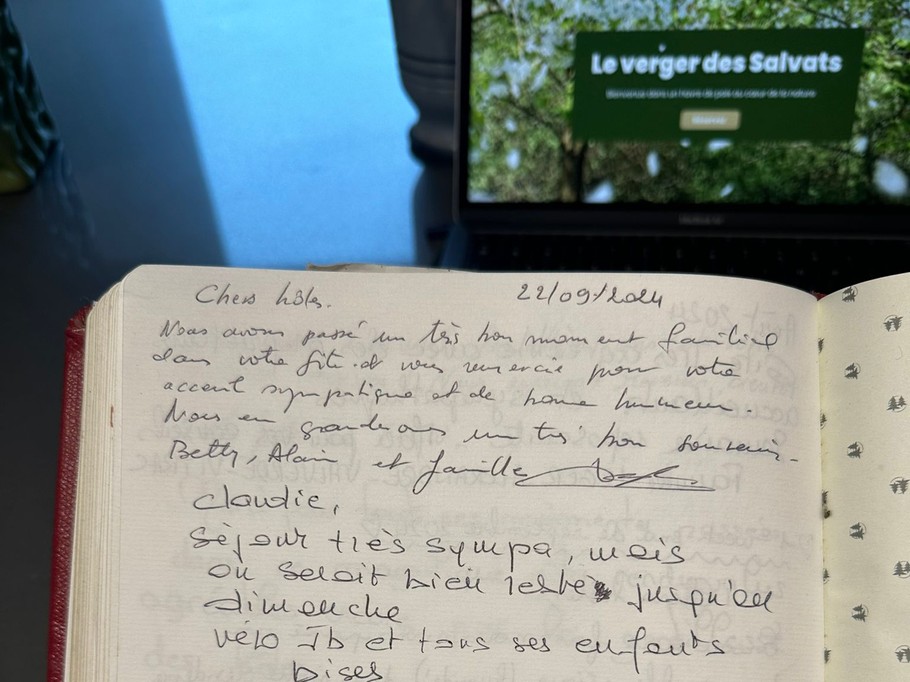 Le verger des Salvats
Bienvenue dans un havre de paix au coeur de la nature
Chers hôtes.
22/09/2024
Nous avons passé un très bon moment familial
dans votre gîte et vous remercie pour votre
accueil sympatique et de bonne humeur.
Nous en garderons un très bon souvenir.
Betty, Alain et famille
Claudie,
Séjour très sympa, mais
on serait bien resté jusqu'au
dimanche
vélo Jb et tous ses enfants
bises